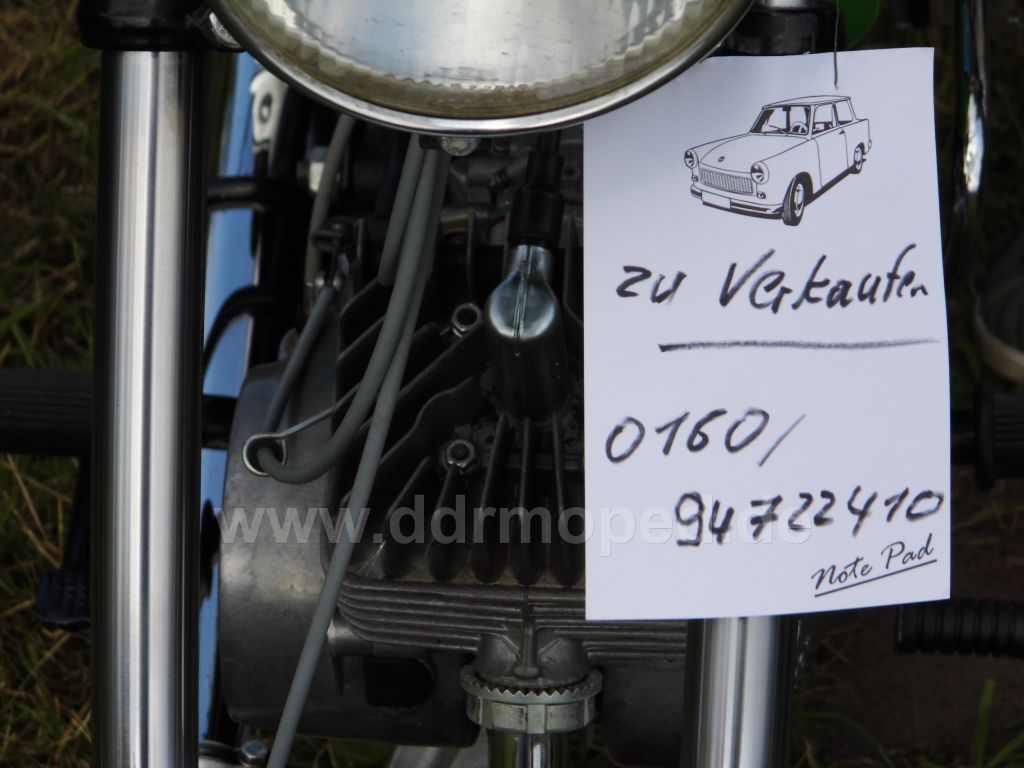 zu Verkaufen
0160/
94722410
Note Pad
www.ddrmoped.de